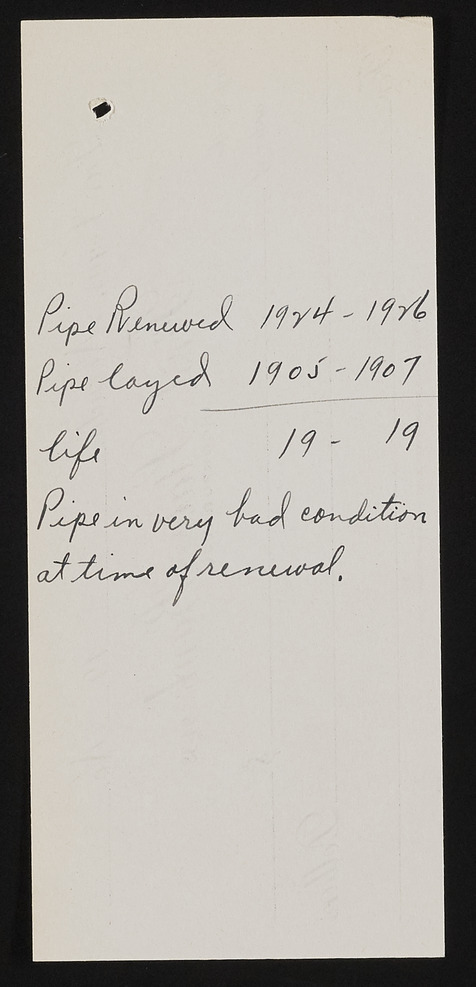 Pipe Renewed 1924 - 1926
Pipe layed 1905 - 1907
life 19 - 19
Pipe in very bad condition
at time of renewal.